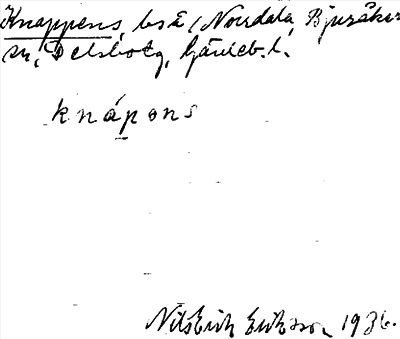 Knappens, bsä i Norrdala, Bjuråker
sn, Delsbo tg, Gävleb. l.
knápons
Nils Erik Eriksson 1936.